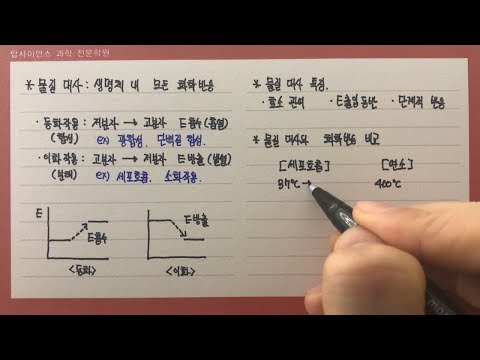 탑사이언스 과학 전문학원
* 물질 대사 : 생명체 내 모든 화학반응
· 동화작용 : 저분자 → 고분자 E흡수(흡열)
(합성) ex) 광합성, 단백질 합성.
· 이화작용 : 고분자 → 저분자 E방출(발열)
(분해) ex) 세포호흡, 소화작용.
E
E흡수
<동화>
E방출
<이화>
* 물질 대사 특징.
· 효소 관여 · E출입 동반 · 단계적 반응
* 물질 대사와 화학반응 비교
[세포호흡] [연소]
37℃ → 400℃